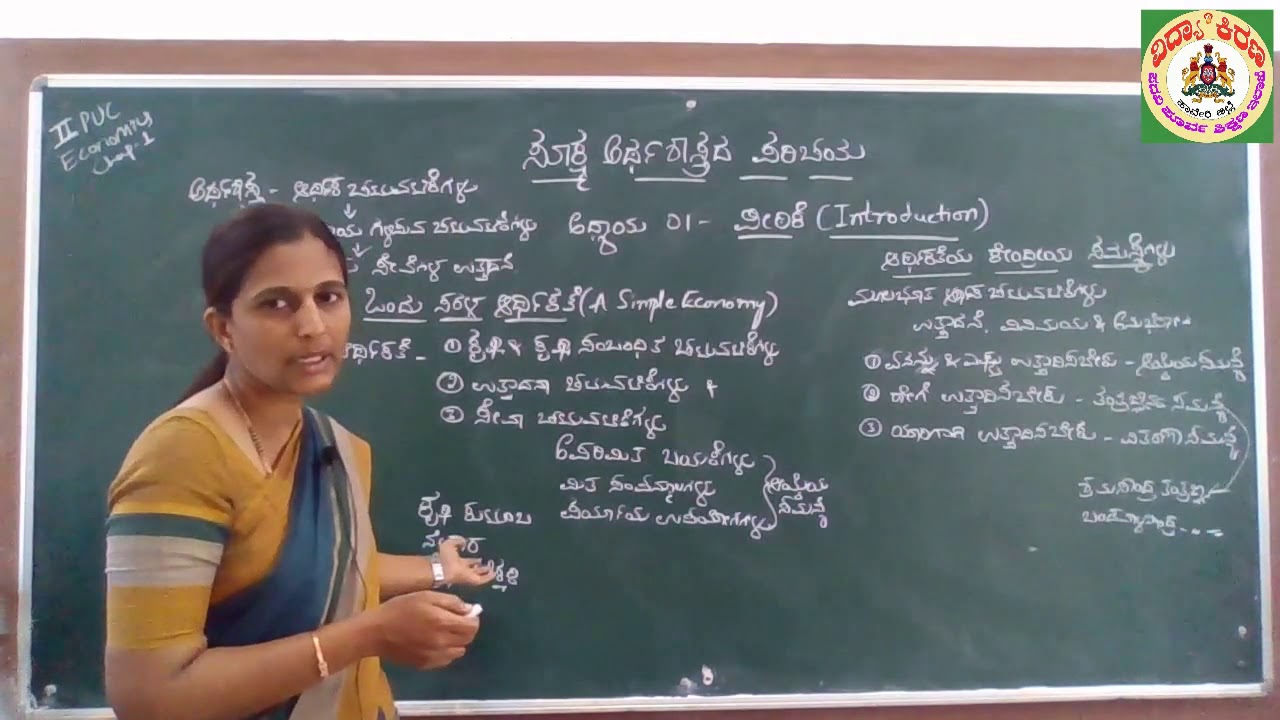 II PUC
Economics
Chapt-1
ವಿದ್ಯಾ ಕಿರಣ
ಹಾವೇರಿ ಜಿಲ್ಲೆ
ಪದವಿ ಪೂರ್ವ ಶಿಕ್ಷಣ ಇಲಾಖೆ
ಸೂಕ್ಷ್ಮ ಅರ್ಥಶಾಸ್ತ್ರದ ಪರಿಚಯ
ಅಧ್ಯಾಯ 01 - ಪೀಠಿಕೆ (Introduction)
ಅರ್ಥಶಾಸ್ತ್ರ - ಆರ್ಥಿಕ ಚಟುವಟಿಕೆಗಳು
ಗಳಿಸುವ ಚಟುವಟಿಕೆಗಳು
ಸೇವೆಗಳ ಉತ್ಪಾದನೆ
ಒಂದು ಸರಳ ಆರ್ಥಿಕತೆ (A Simple Economy)
ಆರ್ಥಿಕತೆ - ① ಕೃಷಿ & ಕೃಷಿ ಸಂಬಂಧಿತ ಚಟುವಟಿಕೆಗಳು
② ಉತ್ಪಾದನಾ ಚಟುವಟಿಕೆಗಳು &
③ ಸೇವಾ ಚಟುವಟಿಕೆಗಳು
ಅಪರಿಮಿತ ಬಯಕೆಗಳು
ಮಿತ ಸಂಪನ್ಮೂಲಗಳು
ಪರ್ಯಾಯ ಉಪಯೋಗಗಳು
ಆಯ್ಕೆಯ
ಸಮಸ್ಯೆ
ಕೃಷಿ ಕುಟುಂಬ
ಆರ್ಥಿಕತೆಯ ಕೇಂದ್ರೀಯ ಸಮಸ್ಯೆಗಳು
ಮೂಲಭೂತ ಆರ್ಥಿಕ ಚಟುವಟಿಕೆಗಳು
ಉತ್ಪಾದನೆ, ವಿನಿಮಯ & ಅನುಭೋಗ
① ಏನನ್ನು & ಎಷ್ಟು ಉತ್ಪಾದಿಸಬೇಕು - ಆಯ್ಕೆಯ ಸಮಸ್ಯೆ
② ಹೇಗೆ ಉತ್ಪಾದಿಸಬೇಕು - ತಂತ್ರಜ್ಞಾನದ ಸಮಸ್ಯೆ
③ ಯಾರಿಗಾಗಿ ಉತ್ಪಾದಿಸಬೇಕು - ವಿತರಣಾ ಸಮಸ್ಯೆ
ಶ್ರಮಸಾಂದ್ರ ತಂತ್ರಜ್ಞಾನ
ಬಂಡವಾಳಸಾಂದ್ರ